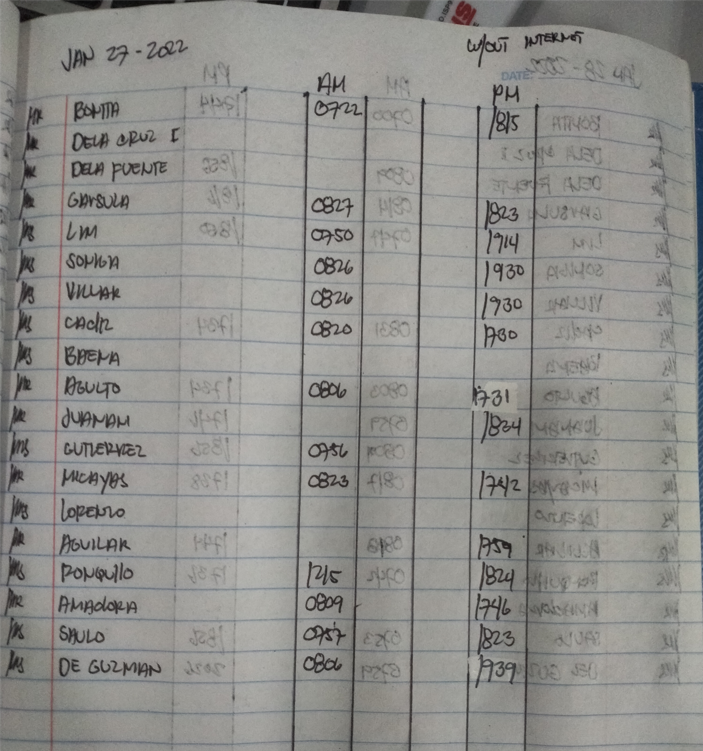 JAN 27-2022
W/OUT INTERNET
DATE:
AM PM
MR BONITA 0722 1815
MR DELA CRUZ I
MR DELA FUENTE
MR GAYSULA 0827 1823
MS LIM 0750 1914
MS SOMIGA 0826 1930
MS VILLAR 0826 1930
MS CADIZ 0820 1730
MS BAENA
MR AGULTO 0806 1731
MR JUANAM 1834
MS GUTIERREZ 0756
MR MICAYAS 0823 1742
MS LORENZO
MR AGUILAR 1759
MS RONQUILLO 1215 1824
MR AMADORA 0809 1746
MS SAULO 0757 1823
MS DE GUZMAN 0806 1939